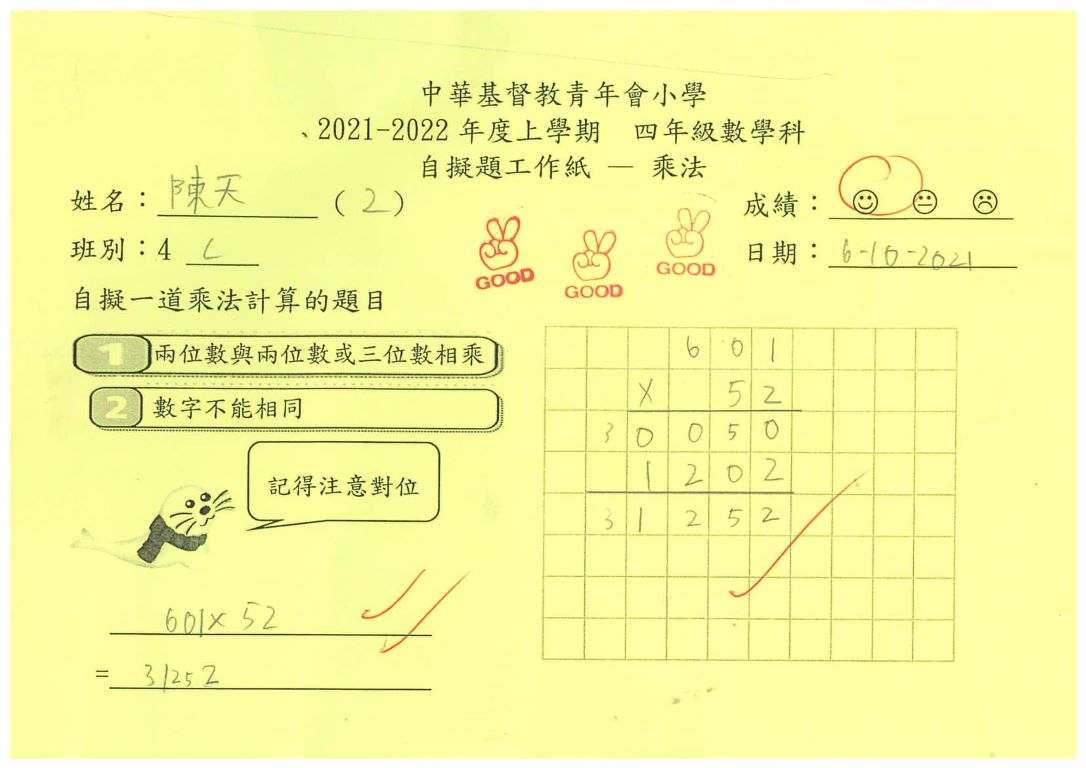 中華基督教青年會小學
2021-2022 年度上學期 四年級數學科
自擬題工作紙 — 乘法
姓名：陳天 （2）
成績：
班別：4 C
日期：6-10-2021
GOOD
GOOD
GOOD
自擬一道乘法計算的題目
1 兩位數與兩位數或三位數相乘
2 數字不能相同
記得注意對位
601
X 52
30050
1202
31252
601×52
= 31252